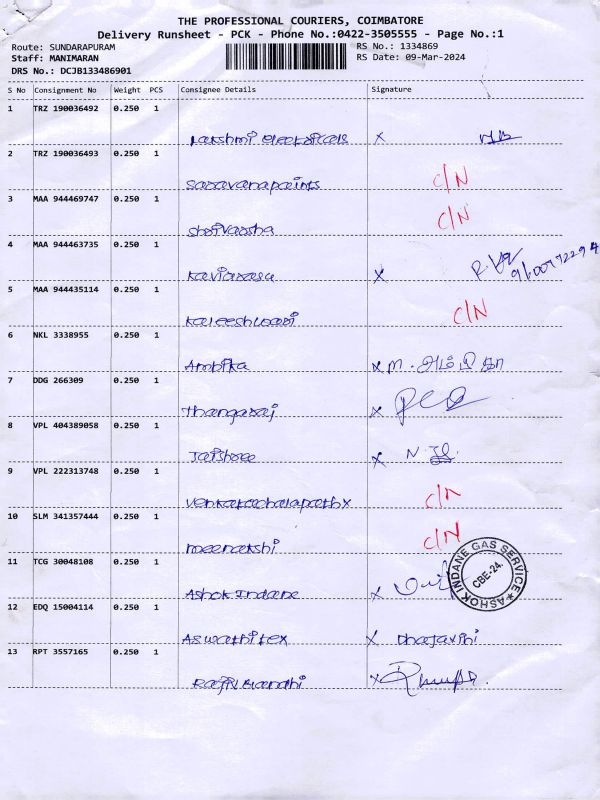 THE PROFESSIONAL COURIERS, COIMBATORE
Delivery Runsheet - PCK - Phone No.:0422-3505555 - Page No.:1
Route: SUNDARAPURAM
Staff: MANIMARAN
DRS No.: DCJB133486901
RS No.: 1334869
RS Date: 09-Mar-2024
S No Consignment No Weight PCS Consignee Details Signature
1 TRZ 190036492 0.250 1
Lakshmi electricals X
2 TRZ 190036493 0.250 1
Saravanapaints C/N
3 MAA 944469747 0.250 1
C/N
4 MAA 944463735 0.250 1
Kaviarasu X
5 MAA 944435114 0.250 1
Kaleeshwari C/N
6 NKL 3338955 0.250 1
Ambika X
7 DDG 266309 0.250 1
Thangaraj X
8 VPL 404389058 0.250 1
Jaishree X
9 VPL 222313748 0.250 1
Venkatachalapathy C/N
10 SLM 341357444 0.250 1
meenakshi C/N
11 TCG 30048108 0.250 1
Ashok Indane X
ASHOK INDANE GAS SERVICE
CBE-24.
12 EDQ 15004114 0.250 1
Aswathi tex X
13 RPT 3557165 0.250 1
Rajiv Gandhi X